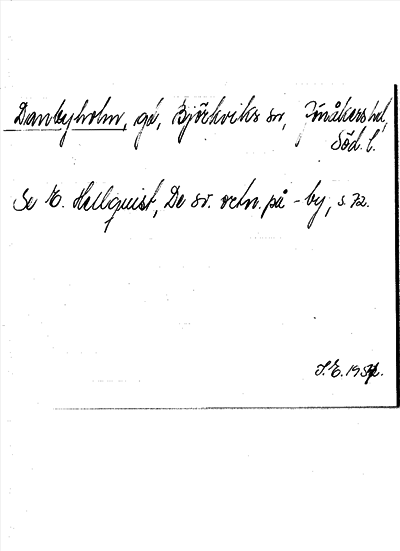 Danbyholm, gd, Björkviks sn, Jönåkers hd,
Söd. l.
Se E. Hellquist, De sv. ortn. på -by, s. 72.